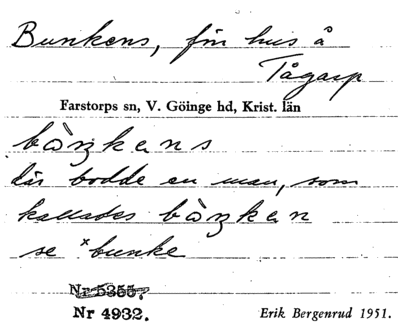 Bunkens, fin hus å
Tågarp
Farstorps sn, V. Göinge hd, Krist. län
bòŋkens
där bodde en man, som
kallades bòŋken
se ˣbunke
Nr 5355.
Nr 4932. Erik Bergenrud 1951.